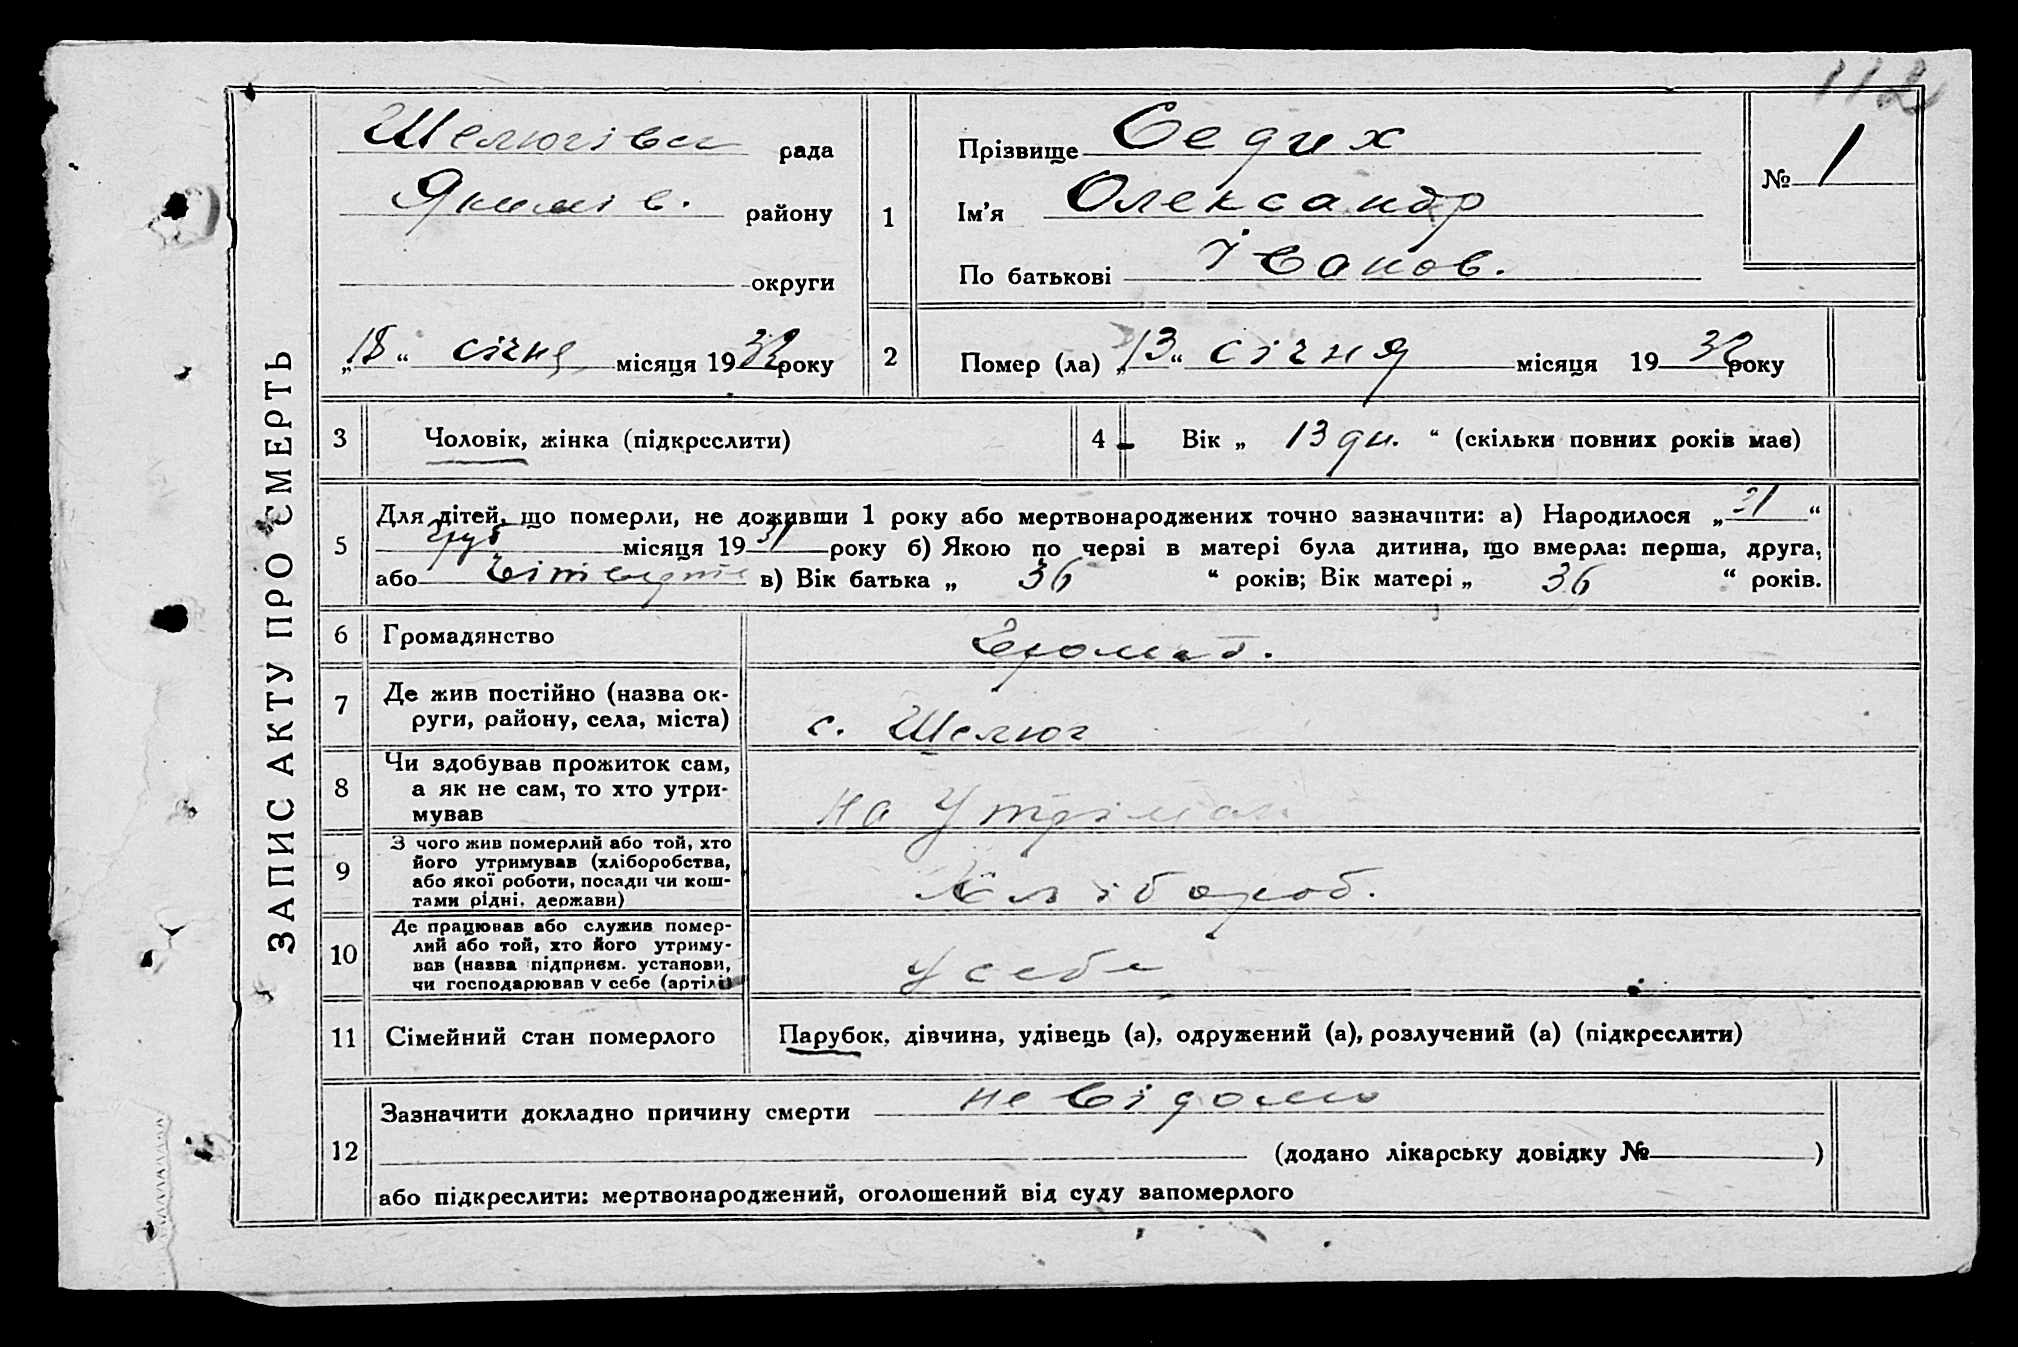 112
ЗАПИС АКТУ ПРО СМЕРТЬ
Шелюгівськ рада
Якимів. району
округи
„18“ січня місяця 1932 року
1
Прізвище Седих
Ім'я Олександр
По батькові Іванов.
№ 1
2
Помер (ла) „13“ січня місяця 1932 року
3
Чоловік, жінка (підкреслити)
4
Вік „13 дн.“ (скільки повних років має)
5
Для дітей, що померли, не доживши 1 року або мертвонароджених точно зазначити: а) Народилося „31“
груд місяця 1931 року б) Якою по черзі в матері була дитина, що вмерла: перша, друга,
або в) Вік батька „36“ років; Вік матері „36“ років.
6
Громадянство
Громад.
7
Де жив постійно (назва ок-
руги, району, села, міста)
с. Шелюг
8
Чи здобував прожиток сам,
а як не сам, то хто утри-
мував
на утріман
9
З чого жив померлий або той, хто
його утримував (хліборобства,
або якої роботи, посади чи кош-
тами рідні, держави)
Хлібороб.
10
Де працював або служив помер-
лий або той, хто його утриму-
вав (назва підприєм. установи,
чи господарював у себе (артілі)
У себе
11
Сімейний стан померлого
Парубок, дівчина, удівець (а), одружений (а), розлучений (а) (підкреслити)
12
Зазначити докладно причину смерти невідомо
(додано лікарську довідку № )
або підкреслити: мертвонароджений, оголошений від суду запомерлого